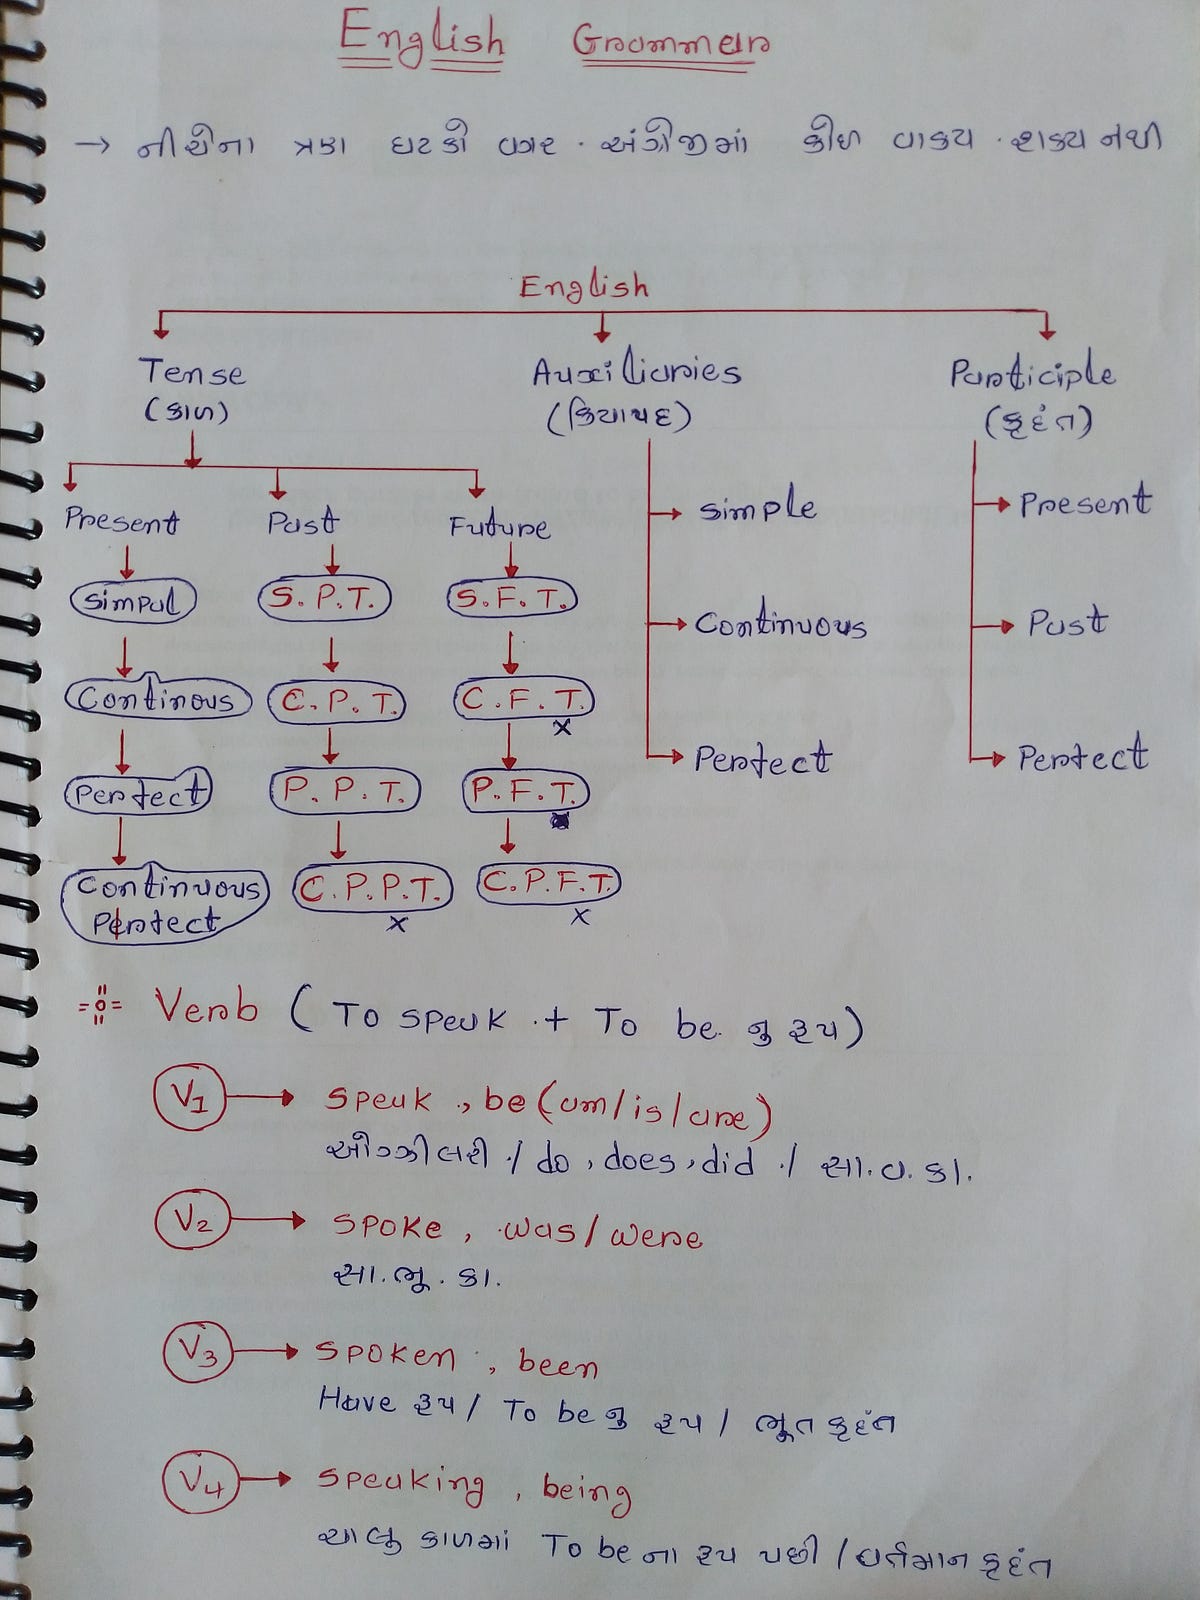 English Grammar
→ નીચેના ત્રણ ઘટકો વગર અંગ્રેજીમાં કોઇ વાક્ય શક્ય નથી
English
Tense Auxiliaries Participle
(કાળ) (ક્રિયાપદ) (કૃદંત)
Present Past Future simple Present
simpal S.P.T. S.F.T. Continuous Past
Continous C.P.T. C.F.T. x
Perfect P.P.T. P.F.T. Perfect Perfect
Continuous Perfect C.P.P.T. x C.P.F.T. x
Verb (To speak + To be નુ રૂપ)
V1 → speak, be (am/is/are)
ઓગ્ઝીલરી / do, does, did / સા.વ.કા.
V2 → spoke, was/were
સા.ભૂ.કા.
V3 → spoken, been
Have રૂપ / To be નુ રૂપ / ભૂત કૃદંત
V4 → speaking, being
ચાલુ કાળમાં To be ના રૂપ પછી / વર્તમાન કૃદંત